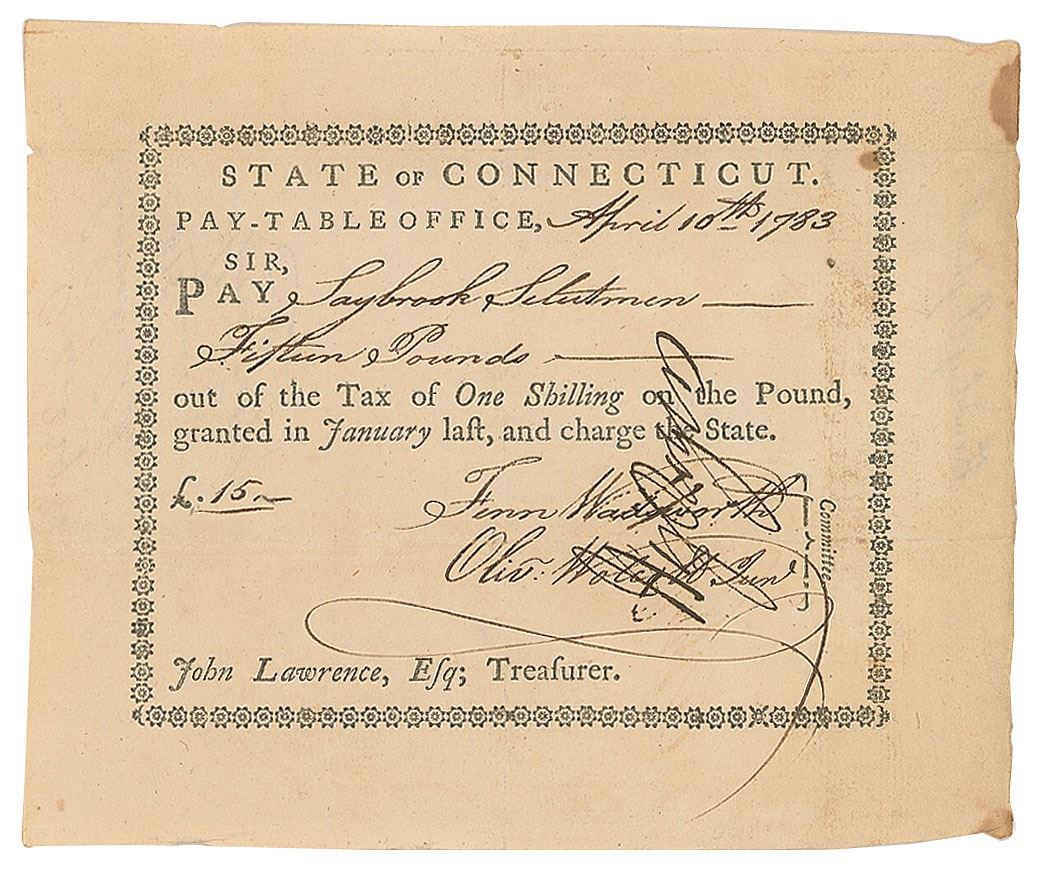 STATE OF CONNECTICUT.
PAY-TABLE OFFICE, April 10th 1783
SIR,
PAY Saybrook Selectmen
Fifteen Pounds
out of the Tax of One Shilling on the Pound,
granted in January laſt, and charge the State.
£. 15
Fenn Wadsworth
Oliv: Wolcott Junr
Committee.
John Lawrence, Eſq; Treaſurer.